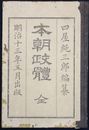 田屋純三郎編纂
本朝政體 全
明治十三年五月出版